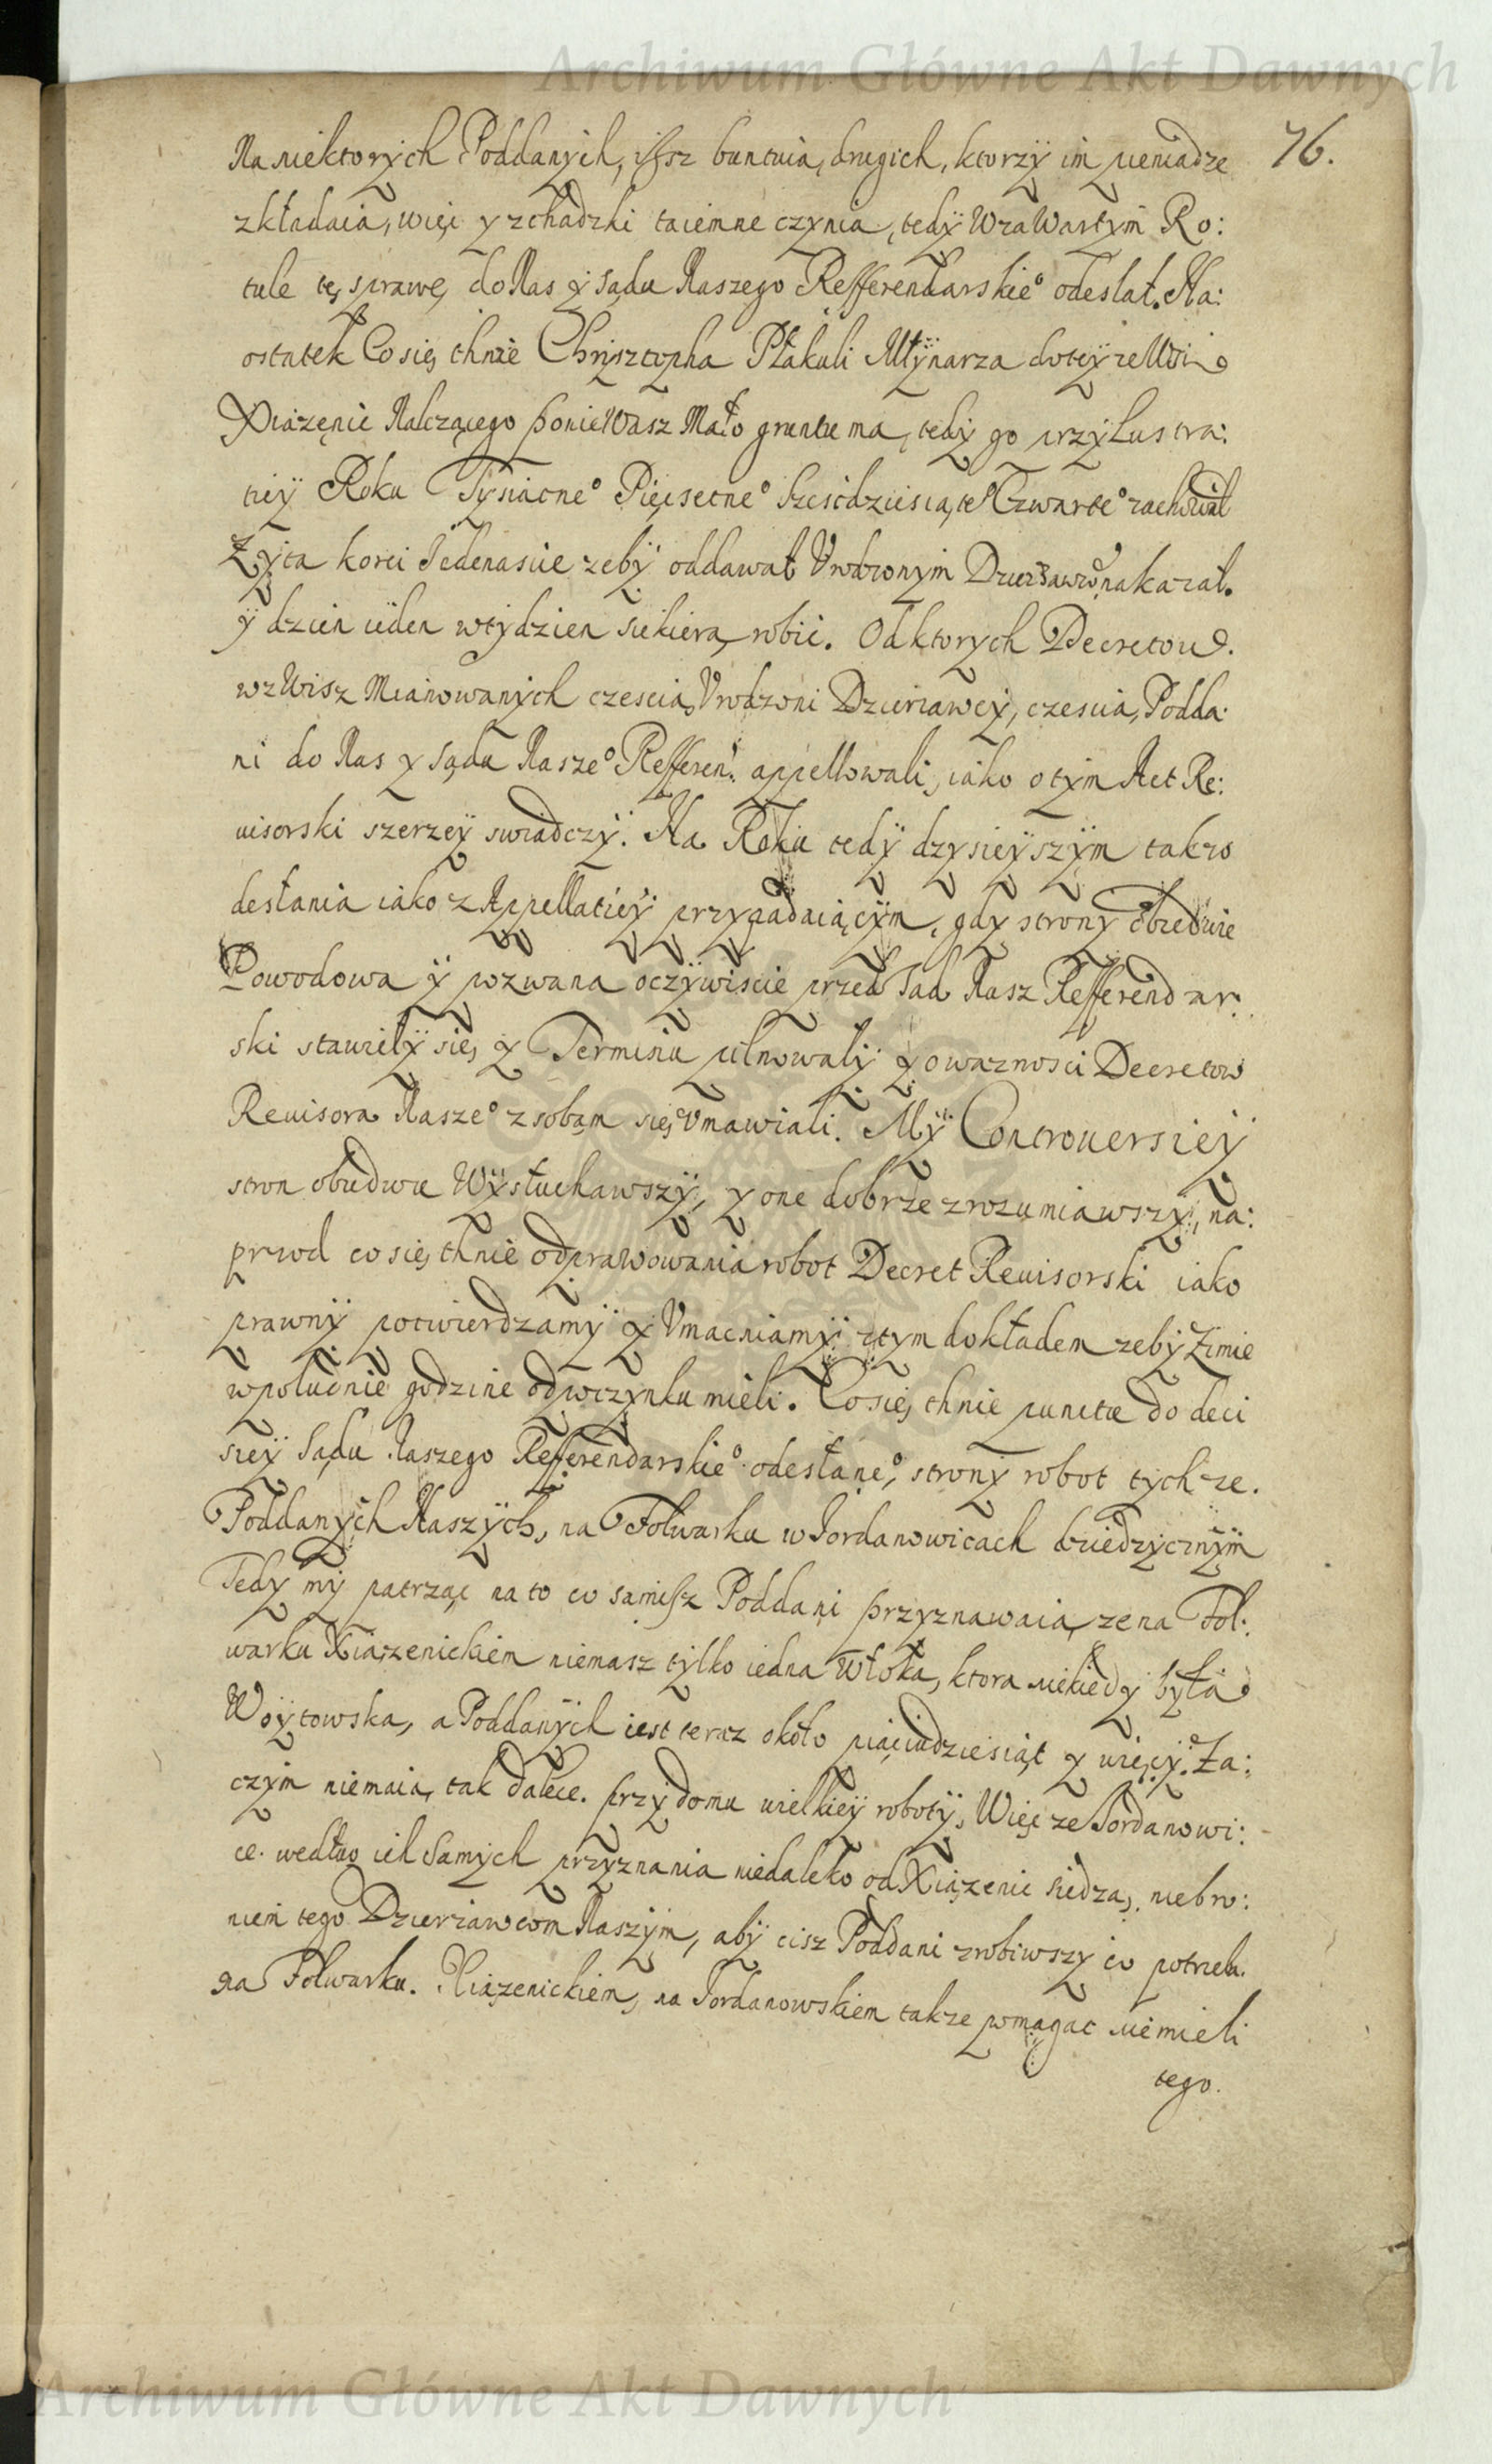 Archiwum Główne Akt Dawnych
76.
Na niektorych Poddanych, ißsz buntuią drugich, ktorzÿ im pieniądze
zkładaią, więc y zchadzki taiemne czynią, tedÿ WzaWartÿm Ro:
tule tę sprawę do Nas y Sądu Naszego Refferendarskie° odesłał. Na:
ostatek Co się thnie Chrisztopha Ptakuli Młÿnarza do teÿ ze Wsi
Xiązęnic Nalezącego ponieWasz Mało gruntu ma, tedÿ go przy Lustra:
tieÿ Roku Tysiącne° Pięcsetne° Szescdziesiąte° Czwarte° zachował
Zÿta korci Jedenascie zebÿ oddawał Vrodzonÿm Dzierzawcō nakazał.
ÿ dzien ieden wtÿdzien siekierą robić. Od ktorych Decretow
wzWisz Mianowanÿch czescią Vrodzoni Dzierzawcÿ, czescią Podda:
ni do Nas y Sądu Nasze° Refferen: appellowali, iako o tÿm Act Re:
uisorski szerzeÿ swiadczÿ. Na Roku tedÿ dzysieÿszÿm tak zo
desłania iako z Appellatieÿ przypadaiącÿm, gdy strony obiedwie
Powodowa ÿ pozwana oczÿwiscie przed Sąd Nasz Refferendar:
ski stawiełÿ się y Terminu pilnowalÿ y o waznosci Decretow
Reuisora Nasze° z sobąm się Vmawiali. Mÿ Controuersieÿ
stron obudwu Wÿsłuchawszÿ, y one dobrze zrozumiawszÿ, na:
przod co się thnie odprawowania robot Decret Reuisorski iako
prawnÿ potwierdzamÿ y Vmacniamÿ z tym dokładem zebÿ Zimie
wpołudnie godzine odpoczynku mieli. Co się thnie punctu do deci
sieÿ Sądu Naszego Refferendarskie° odesłane°, stronÿ robot tych ze.
Poddanÿch Naszÿch, na Folwarku w Jordanowicach dziedzycznÿm
Tedy mÿ patrząc na to co samißz Poddani przyznawaią ze na Fol:
warku Xiązenickiem niemasz tÿlko iedna Włoka, ktora niekiedy była
Woÿtowska, a Poddanÿch iest teraz około piąciudziesiąt y więcÿ. Za:
czÿm niemaią tak dalece. przy domu wielkieÿ robotÿ, Więc ze Jordanowi:
ce. według ich Samych przyznania niedaleko od Xiązenic siedzą, niebro:
niem tego Dzierzawcom Naszÿm, abÿ cisz Poddani zrobiwszy co potrzeb.
na Folwarku. Xiązenickiem, na Jordanowskiem takze pomagac niemieli
tego.
Archiwum Główne Akt Dawnych